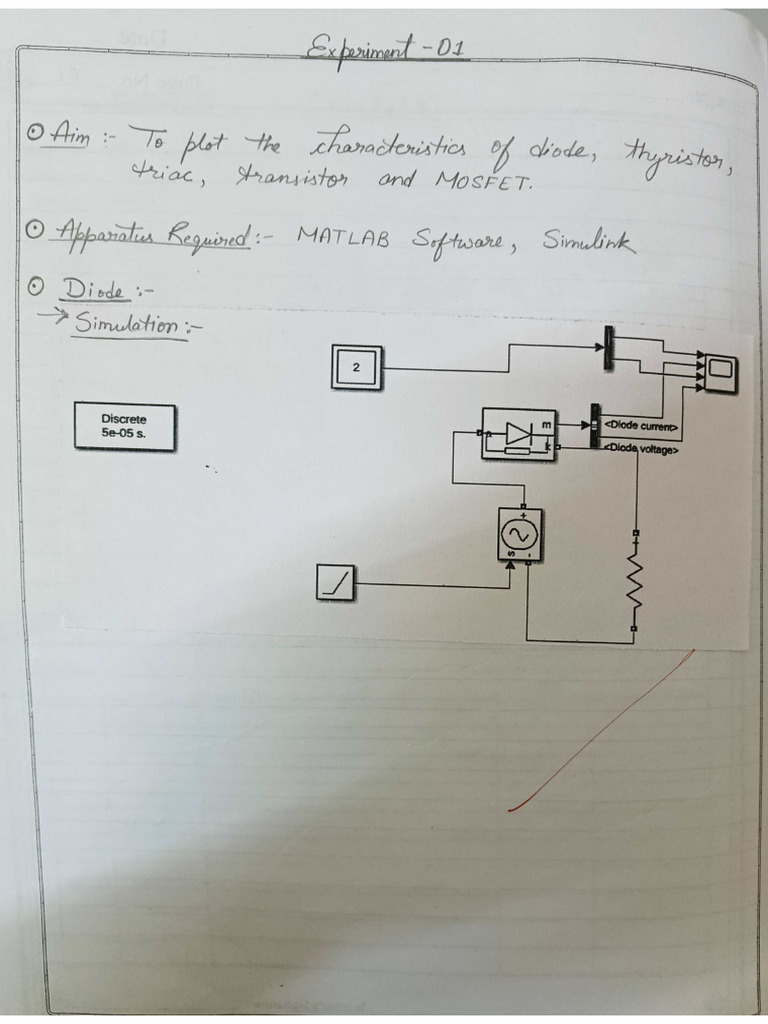 Experiment - 01
Aim :- To plot the characteristics of diode, thyristor,
triac, transistor and MOSFET.
Apparatus Required :- MATLAB Software, Simulink
Diode :-
→ Simulation :-
2
Discrete
5e-05 s.
m
<Diode current>
a
k
<Diode voltage>
+
s
-
+